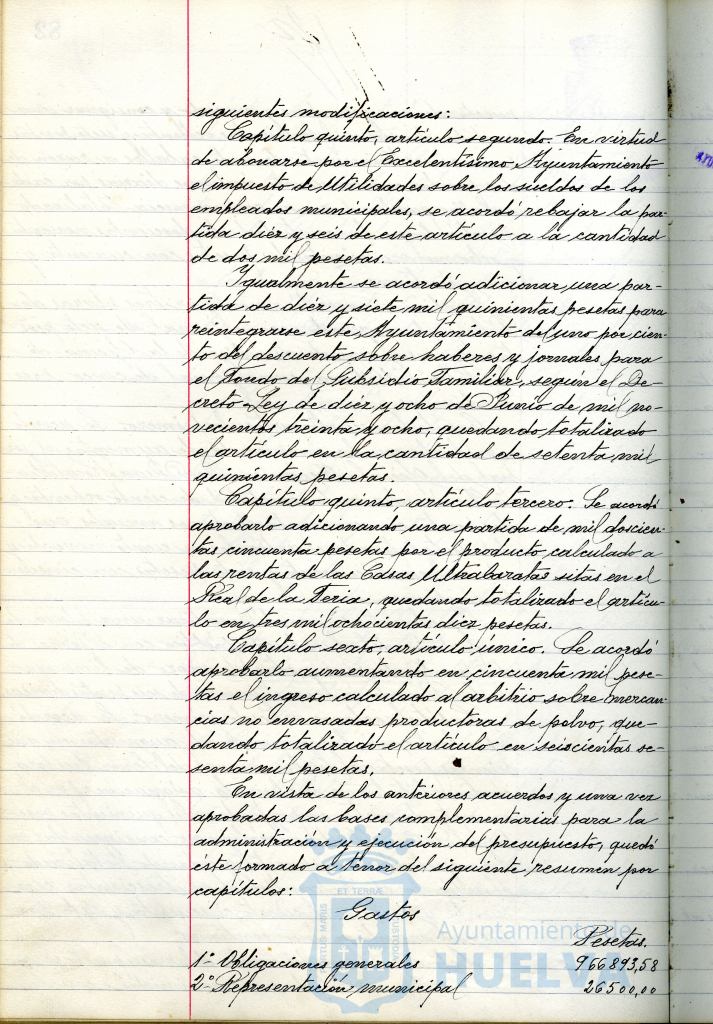 siguientes modificaciones:
Capítulo quinto, artículo segundo. En virtud
de abonarse por el Excelentísimo Ayuntamiento
el impuesto de Utilidades sobre los sueldos de los
empleados municipales, se acordó rebajar la par-
tida diez y seis de este artículo a la cantidad
de dos mil pesetas.
Igualmente se acordó adicionar una par-
tida de diez y siete mil quinientas pesetas para
reintegrarse este Ayuntamiento del uno por cien-
to del descuento sobre haberes y jornales para
el Fondo del Subsidio Familiar, según el De-
creto-Ley de diez y ocho de Junio de mil no-
vecientos treinta y ocho, quedando totalizado
el artículo en la cantidad de setenta mil
quinientas pesetas.
Capítulo quinto, artículo tercero. Se acordó
aprobarlo adicionando una partida de mil doscien-
tas cincuenta pesetas por el producto calculado a
las rentas de las Casas Ultrabaratas sitas en el
Real de la Feria, quedando totalizado el artícu-
lo en tres mil ochocientas diez pesetas.
Capítulo sexto, artículo único. Se acordó
aprobarlo aumentando en cincuenta mil pese-
tas el ingreso calculado al arbitrio sobre mercan-
cías no envasadas productoras de polvo, que-
dando totalizado el artículo en seiscientas se-
senta mil pesetas.
En vista de los anteriores acuerdos y una vez
aprobadas las bases complementarias para la
administración y ejecución del presupuesto, quedó
éste formado a tenor del siguiente resumen por
capítulos:
Gastos
Pesetas.
1º Obligaciones generales 966893,58
2º Representación municipal 26500,00
Ayuntamiento de
HUELVA
ET TERRÆ